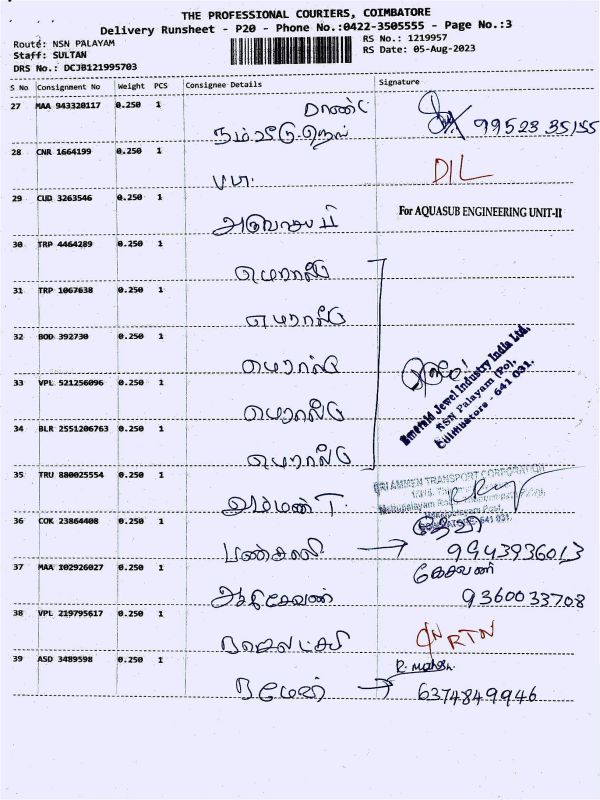 THE PROFESSIONAL COURIERS, COIMBATORE
Delivery Runsheet - P20 - Phone No.:0422-3505555 - Page No.:3
Route: NSN PALAYAM
RS No.: 1219957
Staff: SULTAN
RS Date: 05-Aug-2023
DRS No.: DCJB121995703
S No Consignment No Weight PCS Consignee Details Signature
27 MAA 943320117 0.250 1
9952335155
28 CNR 1664199 0.250 1
DIL
29 CUD 3263546 0.250 1
For AQUASUB ENGINEERING UNIT-II
30 TRP 4464289 0.250 1
எமரால்டு
31 TRP 1067638 0.250 1
எமரால்டு
32 BOD 392730 0.250 1
எமரால்டு
Emerald Jewel Industry India Ltd,
NSN Palayam (Po),
Coimbatore - 641 031.
33 VPL 521256096 0.250 1
எமரால்டு
34 BLR 2551206763 0.250 1
எமரால்டு
35 TRU 880025554 0.250 1
SRI AMMEN TRANSPORT CORPORATION
அம்மன் T.
36 COK 23864408 0.250 1
பன்சாலி → 9943936013
37 MAA 102926027 0.250 1
கேசவன்
ஆதிகேசவன் 9360033708
38 VPL 219795617 0.250 1
RTN
ராஜலட்சுமி
39 ASD 3489598 0.250 1
R. mahesh.
ரமேஷ் → 6374849946